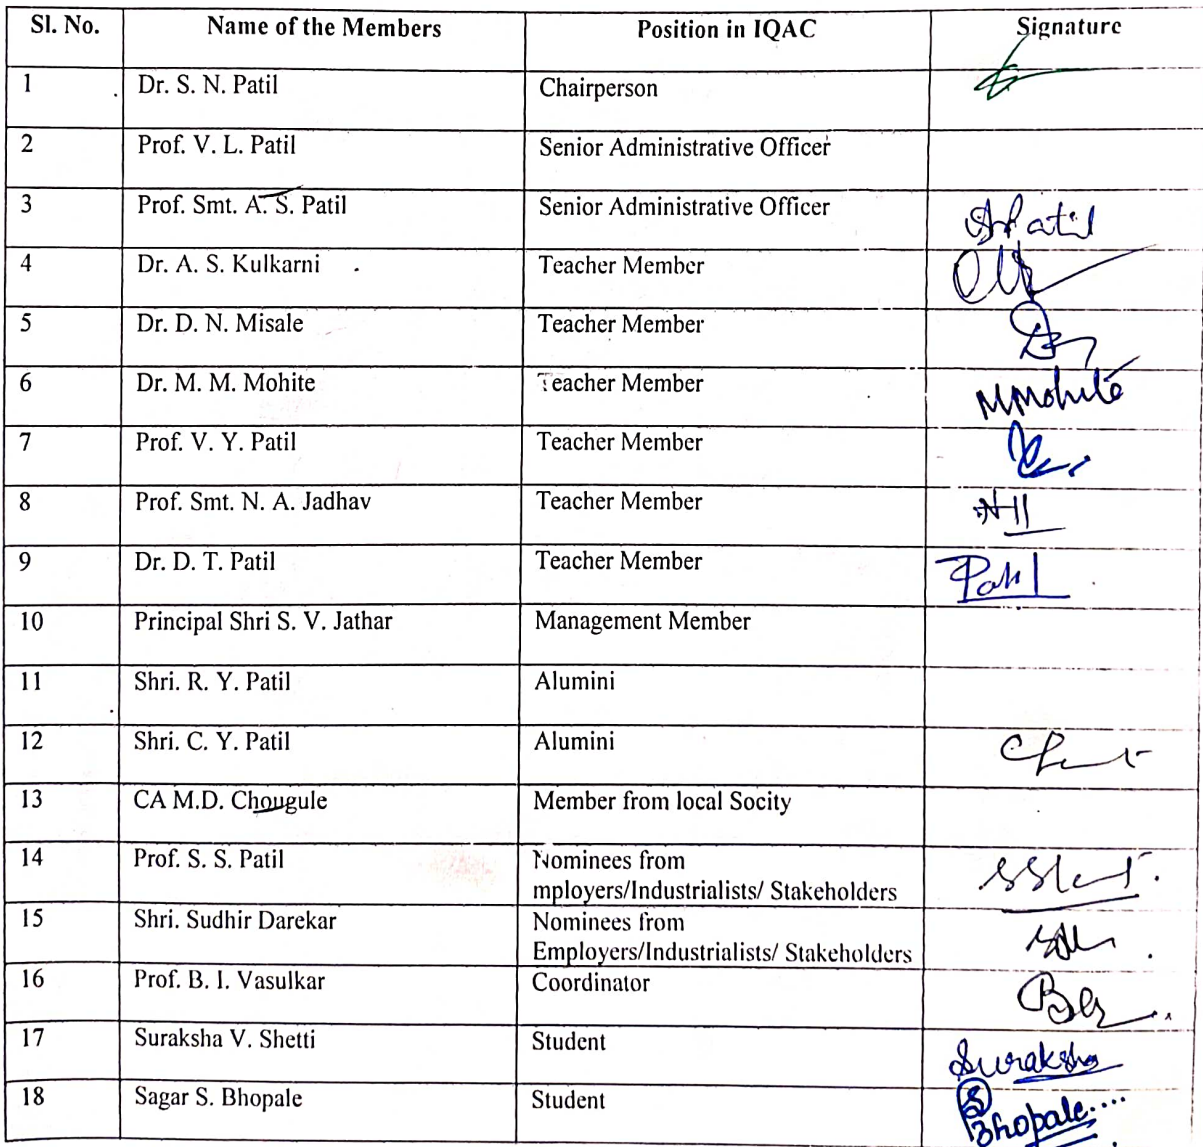 Sl. No. Name of the Members Position in IQAC Signature
1 Dr. S. N. Patil Chairperson
2 Prof. V. L. Patil Senior Administrative Officer
3 Prof. Smt. A. S. Patil Senior Administrative Officer SPatil
4 Dr. A. S. Kulkarni Teacher Member
5 Dr. D. N. Misale Teacher Member
6 Dr. M. M. Mohite Teacher Member MMohite
7 Prof. V. Y. Patil Teacher Member
8 Prof. Smt. N. A. Jadhav Teacher Member
9 Dr. D. T. Patil Teacher Member
10 Principal Shri S. V. Jathar Management Member
11 Shri. R. Y. Patil Alumini
12 Shri. C. Y. Patil Alumini
13 CA M.D. Chougule Member from local Socity
14 Prof. S. S. Patil Nominees from
mployers/Industrialists/ Stakeholders
15 Shri. Sudhir Darekar Nominees from
Employers/Industrialists/ Stakeholders
16 Prof. B. I. Vasulkar Coordinator
17 Suraksha V. Shetti Student Suraksha
18 Sagar S. Bhopale Student S
Bhopale....